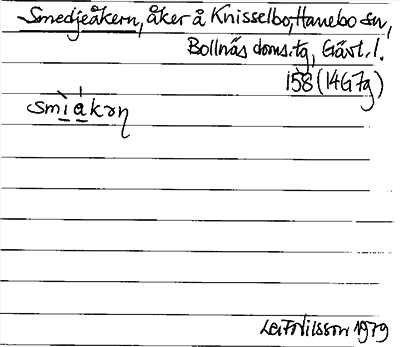 Smedjeåkern, åker å Knisselbo, Hanebo sn,
Bollnäs doms.tg, Gävl.l.
158 (14G7g)
smìákəɳ
Leif Nilsson 1979